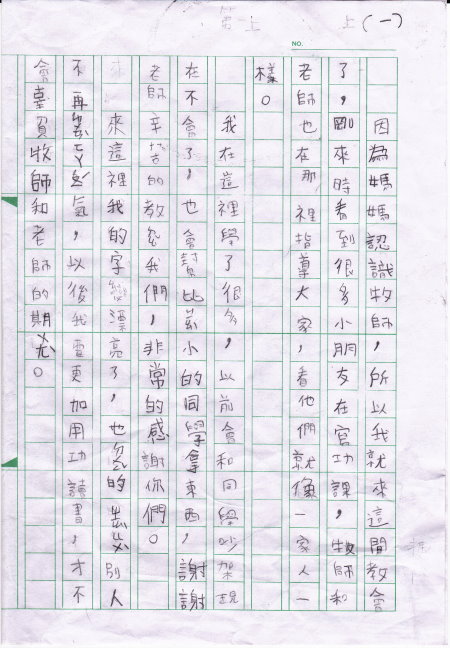 上(一)
NO.
因為媽媽認識牧師,所以我就來這間教會
了,剛來時看到很多小朋友在寫功課,牧師和
老師也在那裡指導大家,看他們就像一家人一
樣。
我在這裡學了很多,以前會和同學吵架現
在不會了,也會幫比小的同學拿東西,謝謝
老師辛苦的教我們,非常的感謝你們。
來這裡我的字變漂亮了,也的別人
不再氣,以後我會更加用功讀書,才不
會辜負牧師和老師的期。